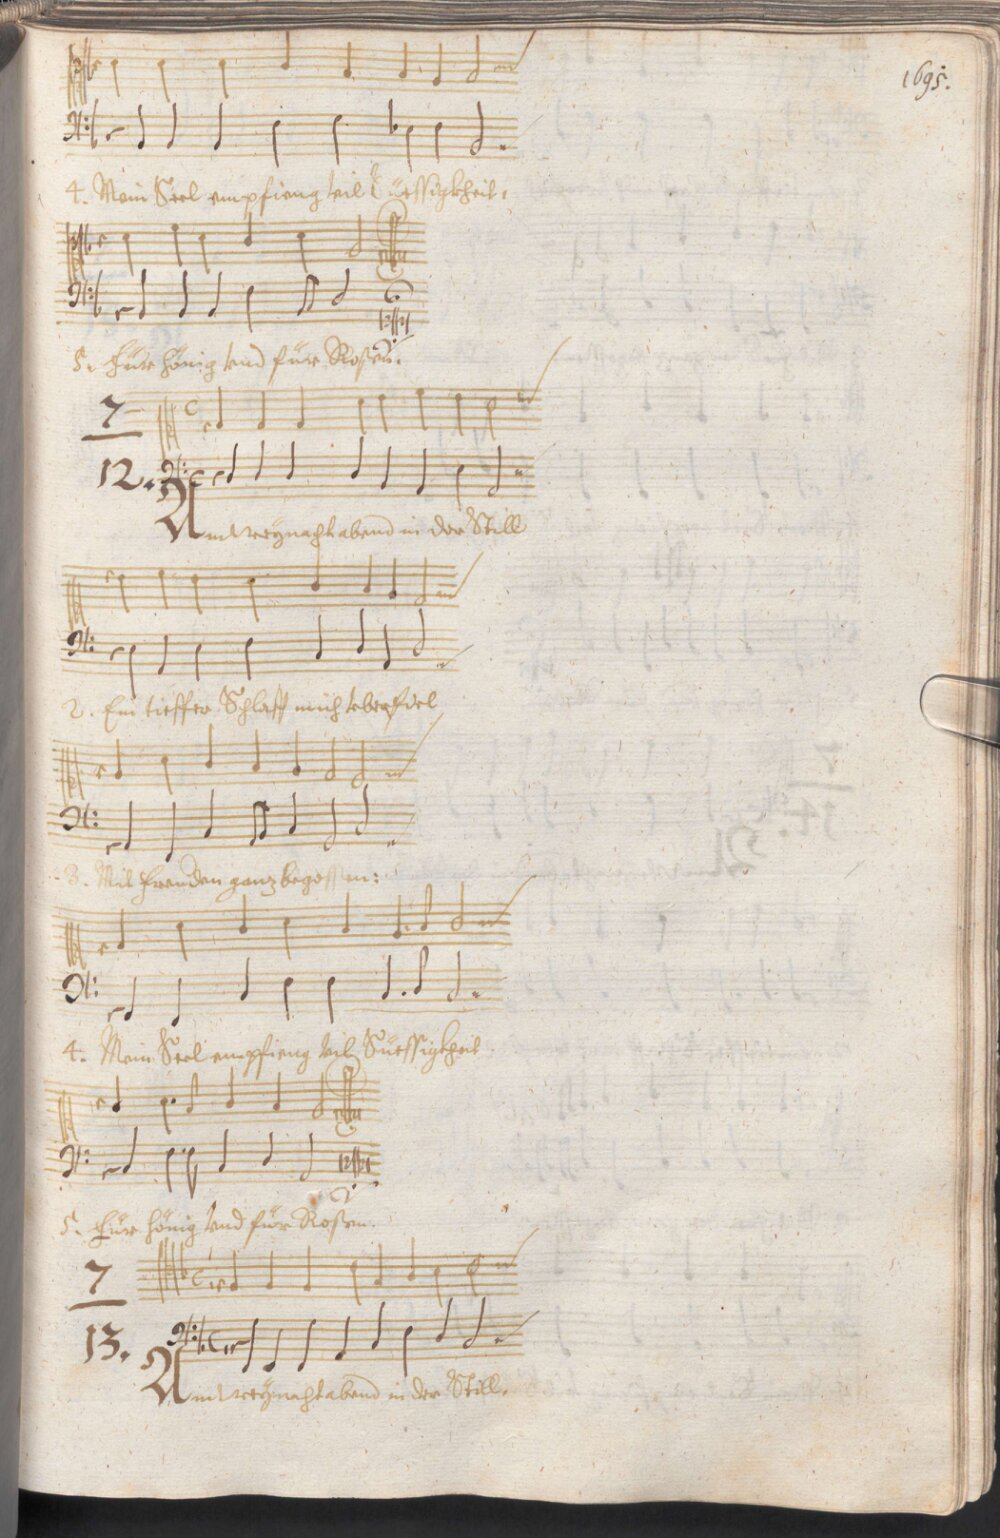 1695.
4. Mein Seel empfieng vil Süessigkheit.
5. Für hönig vnd für Rosen.
7
12.
Am weÿnacht abend in der Still
2. Ein tieffer Schlaff mich vberfiel
3. Mit freuden ganz begossen:
4. Mein Seel empfieng vil Süessigkheit
5. Für hönig vnd für Rosen.
7
13.
Am weÿnacht abend in der Still.